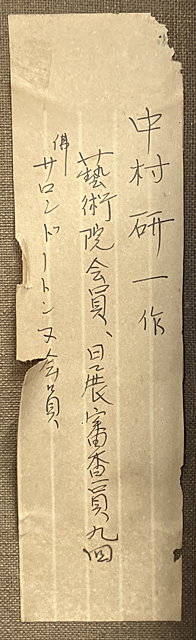 中村研一作
藝術院会員、日展審査員九回
佛サロンドートンヌ会員